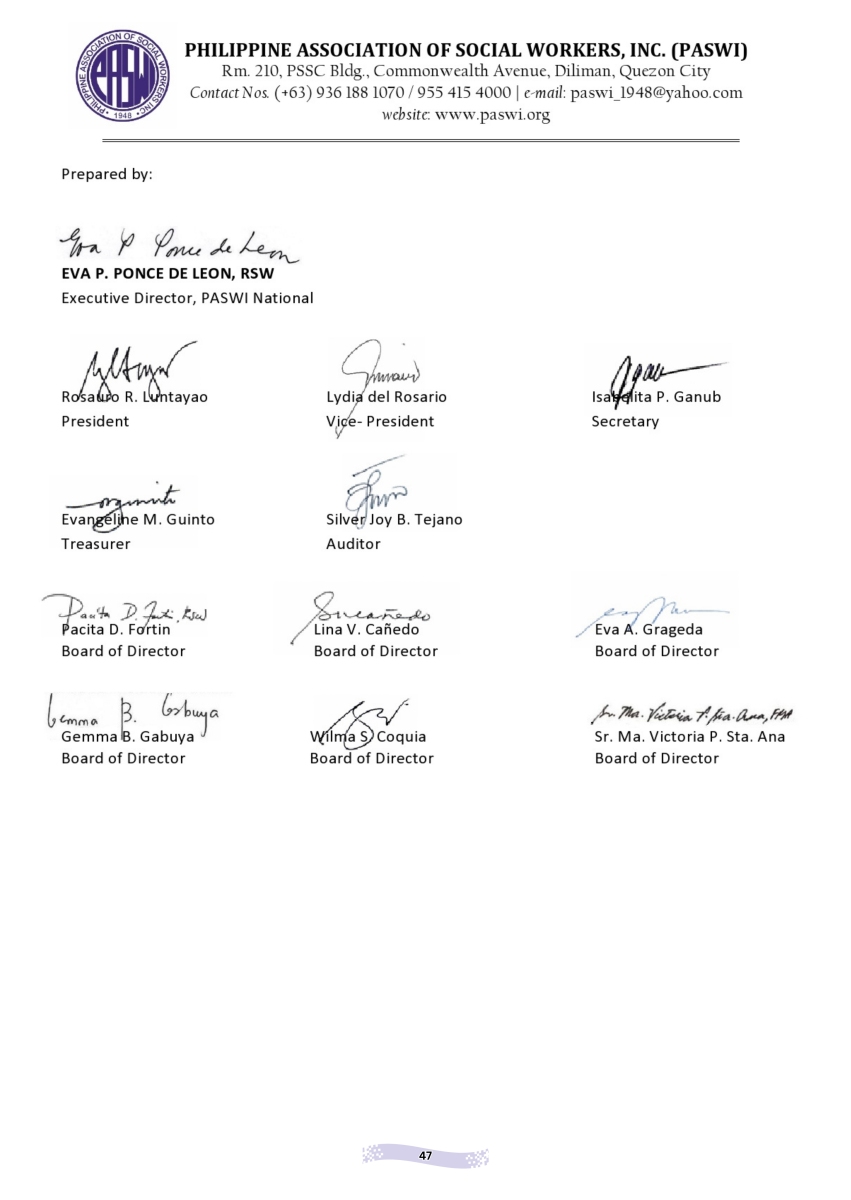 PHILIPPINE ASSOCIATION OF SOCIAL WORKERS INC.
PASWI
• 1948 •
PHILIPPINE ASSOCIATION OF SOCIAL WORKERS, INC. (PASWI)
Rm. 210, PSSC Bldg., Commonwealth Avenue, Diliman, Quezon City
Contact Nos. (+63) 936 188 1070 / 955 415 4000 | e-mail: paswi_1948@yahoo.com
website: www.paswi.org
Prepared by:
Eva P Ponce de Leon
EVA P. PONCE DE LEON, RSW
Executive Director, PASWI National
Rosauro R. Luntayao
Lydia del Rosario
Isabelita P. Ganub
President
Vice- President
Secretary
Evangeline M. Guinto
Silver Joy B. Tejano
Treasurer
Auditor
Pacita D. Forti, RSW
Pacita D. Fortin
Lina V. Cañedo
Eva A. Grageda
Board of Director
Board of Director
Board of Director
Gemma B. Gabuya
Sr. Ma. Victoria P. Sta. Ana, FMA
Gemma B. Gabuya
Wilma S. Coquia
Sr. Ma. Victoria P. Sta. Ana
Board of Director
Board of Director
Board of Director
47